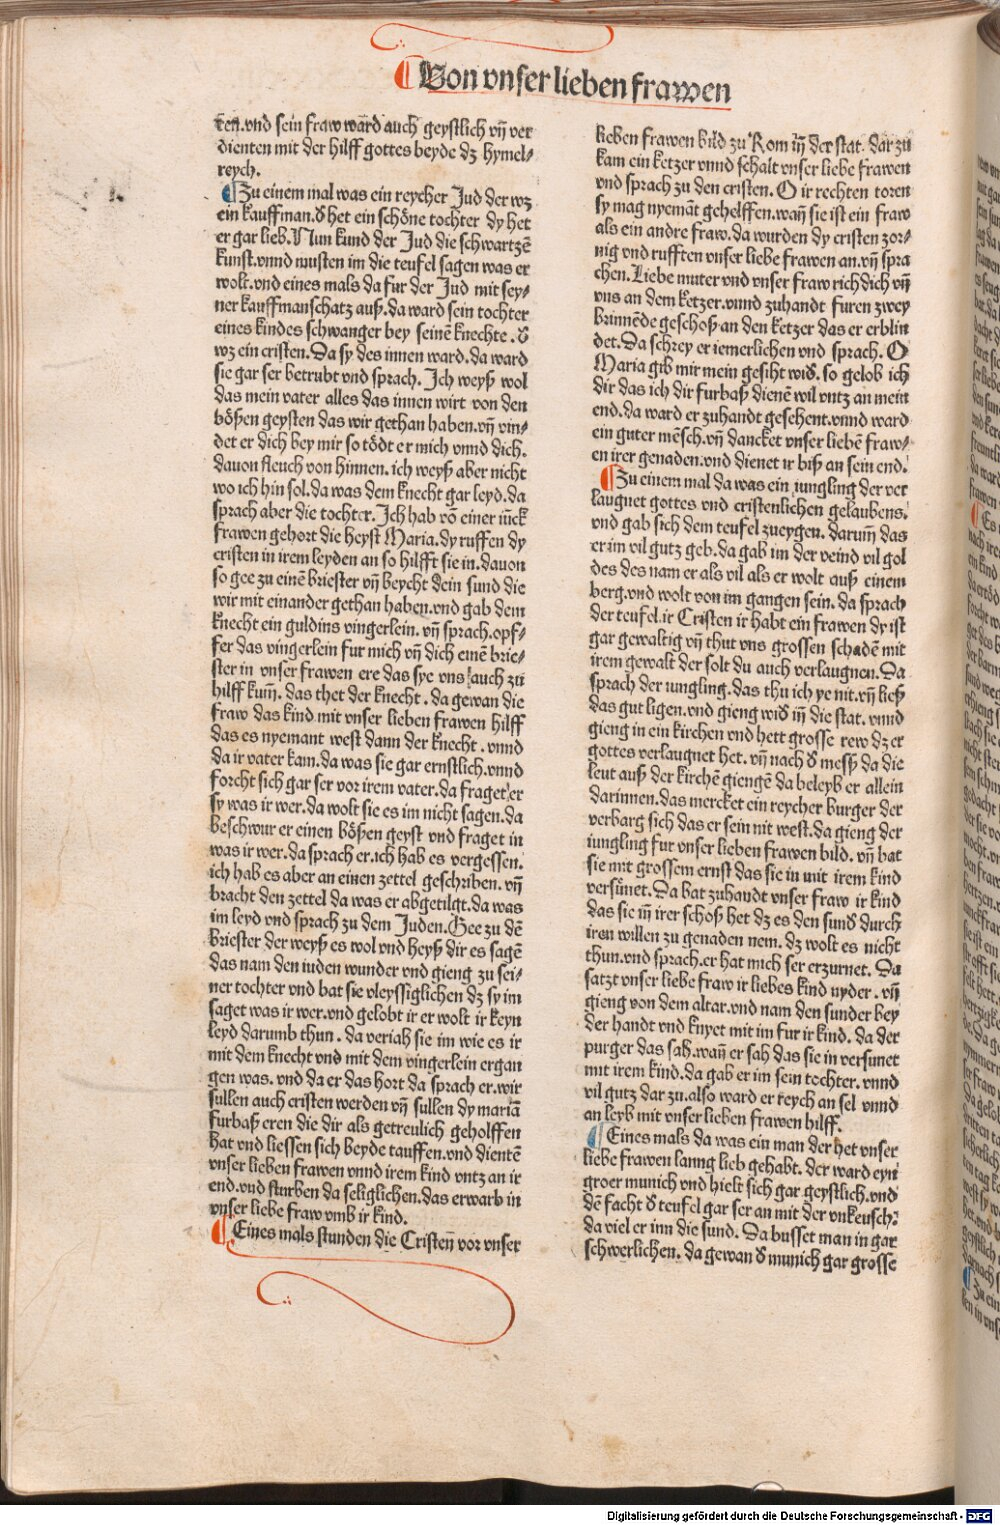 Von vnser lieben frawen
ten.vnd sein fraw ward auch geystlich vn̄ ver
dienten mit der hilff gottes beyde dz hymel⸗
reych.
Zu einem mal was ein reycher Jud der wz
ein kauffman.d̕ het ein schöne tochter dy het
er gar lieb.Nun kund der Jud die schwartzē
kunst.vnnd musten im die teufel sagen was er
wolt.vnd eines mals da fur der Jud mit sey⸗
ner kauffmanschatz auß.da ward sein tochter
eines kindes schwanger bey seinē knechte.d̕
wz ein cristen.Da sy des innen ward.da ward
sie gar ser betrubt vnd sprach.Ich weyß wol
das mein vater alles das innen wirt von den
bößen geysten das wir gethan haben.vn̄ vin⸗
det er dich bey mir so tödt er mich vnnd dich.
dauon fleuch von hinnen.ich weyß aber nicht
wo ich hin sol.da was dem knecht gar leyd.da
sprach aber die tochter.Ich hab vō einer iūck
frawen gehort die heyst Maria.dy ruffen dy
cristen in irem leyden an so hilfft sie in.dauon
so gee zu einē briester vn̄ beycht dein sund die
wir mit einander gethan haben.vnd gab dem
knecht ein guldins vingerlein.vn̄ sprach.opf⸗
fer das vingerlein fur mich vn̄ dich einē brie⸗
ster in vnser frawen ere das sye vns auch zu
hilff kum̄.das thet der knecht.da gewan die
fraw das kind mit vnser lieben frawen hilff
das es nyemant west dann der knecht.vnnd
da ir vater kam.da was sie gar ernstlich.vnnd
forcht sich gar ser vor irem vater.da fraget er
sy was ir wer.da wolt sie es im nicht sagen.da
beschwur er einen bößen geyst vnd fraget in
was ir wer.da sprach er.ich hab es vergessen.
ich hab es aber an einen zettel geschriben.vn̄
bracht den zettel da was er abgetilgt.da was
im leyd vnd sprach zu dem Juden.Gee zu dē
briester der weyß es wol vnd heyß dir es sagē
das nam den iuden wunder vnd gieng zu sei⸗
ner tochter vnd bat sie vleyssiglichen dz sy im
saget was ir wer.vnd gelobt ir er wolt ir keyn
leyd darumb thun.da veriah sie im wie es ir
mit dem knecht vnd mit dem vingerlein ergan
gen was.vnd da er das hort da sprach er.wir
sullen auch cristen werden vn̄ sullen dy mariā
furbaß eren die dir als getreulich geholffen
hat vnd liessen sich beyde tauffen.vnd dientē
vnser lieben frawen vnnd irem kind vntz an ir
end.vnd sturben da seliglichen.das erwarb in
vnser liebe fraw vmb ir kind.
Eines mals stunden die Cristen vor vnser
lieben frawen bild zu Rom in̄ der stat.dar zu
kam ein ketzer vnnd schalt vnser liebe frawen
vnd sprach zu den cristen.O ir rechten toren
sy mag nyemāt gehelffen.wan̄ sie ist ein fraw
als ein andre fraw.da wurden dy cristen zor⸗
nig vnd rufften vnser liebe frawen an.vn̄ spra
chen.Liebe muter vnd vnser fraw rich dich vn̄
vns an dem ketzer.vnnd zuhandt furen zwey
brinnēde geschoß an den ketzer das er erblin
det.Da schrey er iemerlichen vnd sprach.O
Maria gib mir mein gesiht wid̕.so gelob ich
dir das ich dir furbaß dienē wil vntz an mein
end.da ward er zuhandt gesehent.vnnd ward
ein guter mēsch.vn̄ dancket vnser liebē fraw⸗
en irer genaden.vnd dienet ir biß an sein end.
Zu einem mal da was ein iungling der ver
laugnet gottes vnd cristenlichen gelaubens.
vnd gab sich dem teufel zueygen.darum̄ das
er im vil gutz geb.da gab im der veind vil gol
des des nam er als vil als er wolt auß einem
berg.vnd wolt von im gangen sein.da sprach
der teufel.ir Cristen ir habt ein frawen dy ist
gar gewaltig vn̄ thut vns grossen schadē mit
irem gewalt der solt du auch verlaugnen.Da
sprach der iungling.das thu ich ye nit.vn̄ ließ
das gut ligen.vnd gieng wid̕ in̄ die stat.vnnd
gieng in ein kirchen vnd hett grosse rew dz er
gottes verlaugnet het.vn̄ nach d̕ meß da die
leut auß der kirchē giengē da beleyb er allein
darinnen.das mercket ein reycher burger der
verbarg sich das er sein nit west.da gieng der
iungling fur vnser lieben frawen bild.vn̄ bat
sie mit grossem ernst das sie in mit irem kind
versünet.Da bat zuhandt vnser fraw ir kind
das sie in̄ irer schoß het dz es den sund̕ durch
iren willen zu genaden nem.dz wolt es nicht
thun.vnd sprach.er hat mich ser erzurnet.Da
satzt vnser liebe fraw ir liebes kind nyder.vn̄
gieng von dem altar.vnd nam den sunder bey
der handt vnd knyet mit im fur ir kind.da der
purger das sah.wan̄ er sah das sie in versunet
mit irem kind.da gab er im sein tochter.vnnd
vil gutz dar zu.also ward er reych an sel vnnd
an leyb mit vnser lieben frawen hilff.
Eines mals da was ein man der het vnser
liebe frawen lanng lieb gehabt.der ward eyn
groer munich vnd hielt sich gar geystlich.vnd
dē facht d̕ teufel gar ser an mit der vnkeusch⸗
da viel er inn die sund.Da busset man in gar
schwerlichen.da gewan d̕ munich gar grosse
Digitalisierung gefördert durch die Deutsche Forschungsgemeinschaft - DFG